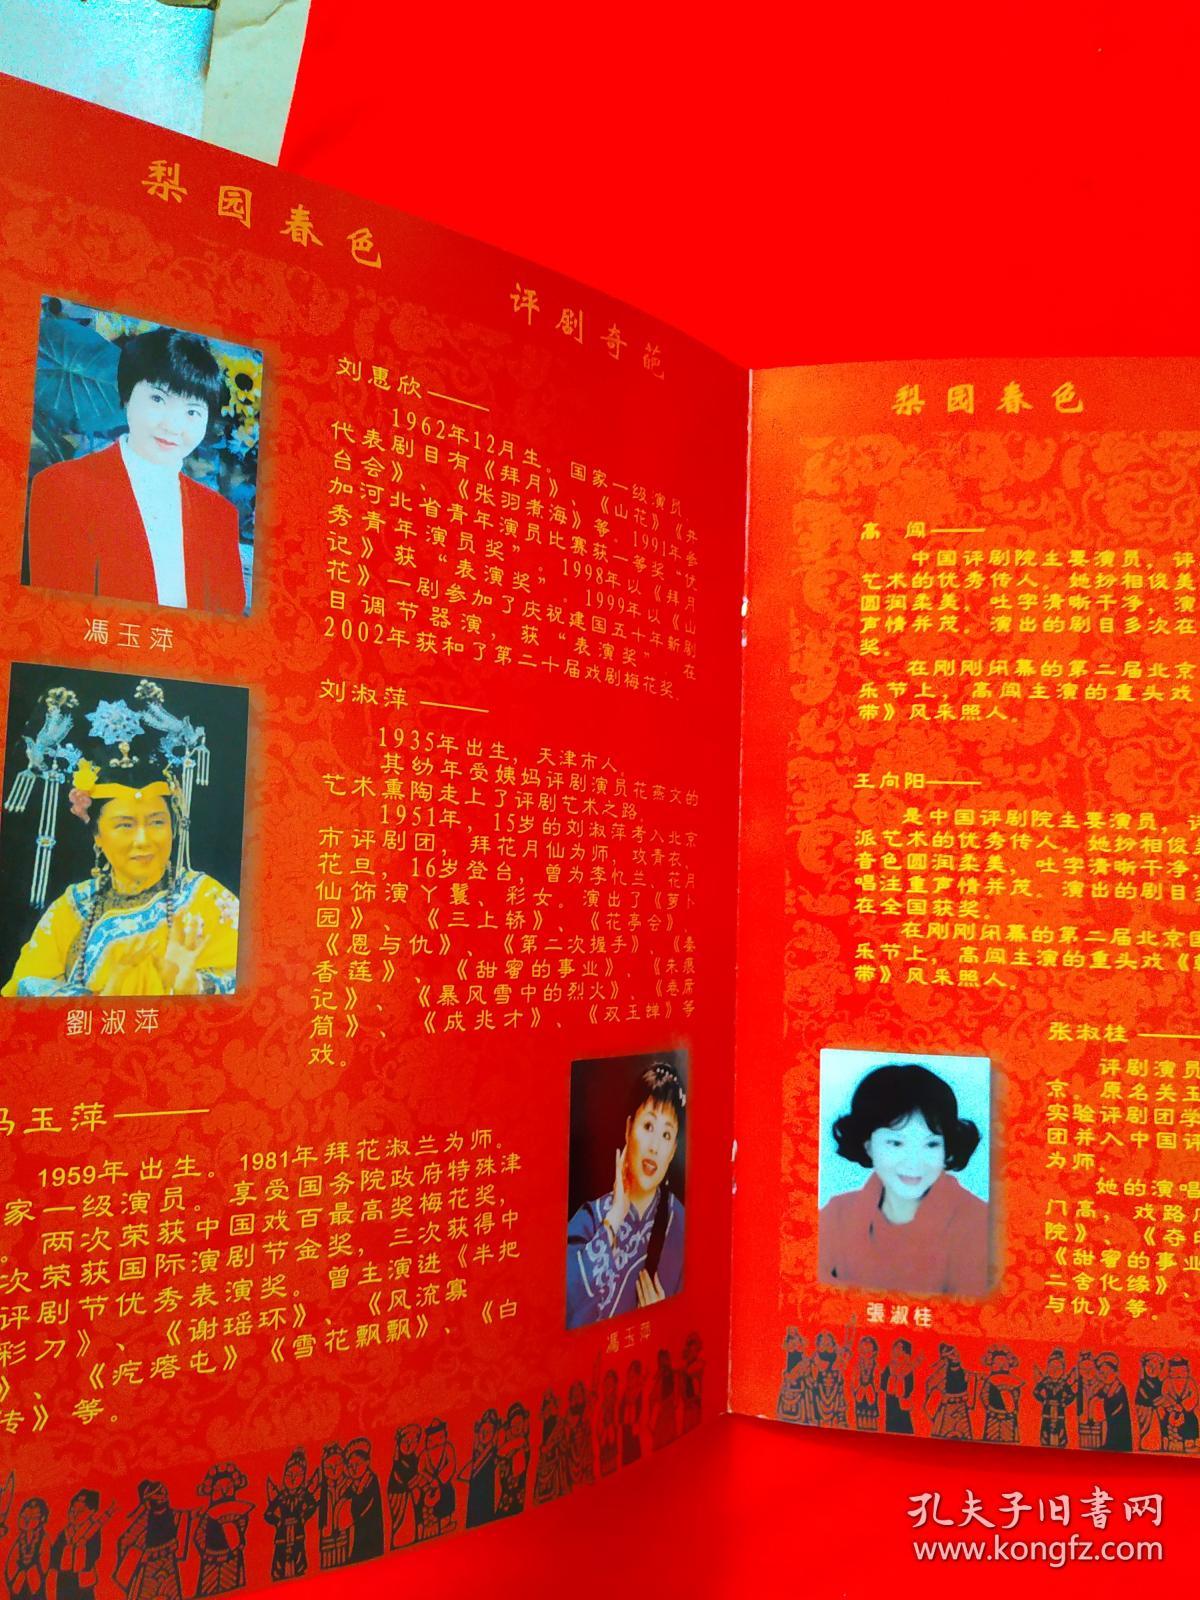 梨园春色
评剧奇葩
馮玉萍
劉淑萍
刘惠欣——
1962年12月生。国家一级演员
代表剧目有《拜月》、《山花》《井
台会》、《张羽煮海》等。1991年参
加河北省青年演员比赛获一等奖“优
秀青年演员奖”。1998年以《拜月
记》获“表演奖”。1999年以《山
花》一剧参加了庆祝建国五十年新剧
目调节器演，获“表演奖”。在
2002年获和了第二十届戏剧梅花奖。
刘淑萍——
1935年出生，天津市人。
其幼年受姨妈评剧演员花燕文的
艺术熏陶走上了评剧艺术之路。
1951年，15岁的刘淑萍考入北京
市评剧团，拜花月仙为师，攻青衣、
花旦，16岁登台，曾为李忆兰、花月
仙饰演丫鬟、彩女。演出了《萝卜
园》、《三上轿》、《花亭会》、
《恩与仇》、《第二次握手》、《秦
香莲》、《甜蜜的事业》、《朱痕
记》、《暴风雪中的烈火》、《卷席
筒》、《成兆才》、《双玉蝉》等
戏。
冯玉萍——
1959年出生。1981年拜花淑兰为师。
家一级演员。享受国务院政府特殊津
。两次荣获中国戏百最高奖梅花奖，
次荣获国际演剧节金奖，三次获得中
评剧节优秀表演奖。曾主演进《半把
彩刀》、《谢瑶环》、《风流寡
》、《疙瘩屯》《雪花飘飘》、《白
传》等。
馮玉萍
梨园春色
高 闯——
中国评剧院主要演员，评
艺术的优秀传人。她扮相俊美
圆润柔美，吐字清晰干净，演
声情并茂。演出的剧目多次在
奖。
在刚刚闭幕的第二届北京
乐节上，高闯主演的重头戏
带》风采照人。
王向阳——
是中国评剧院主要演员，评
派艺术的优秀传人。她扮相俊美
音色圆润柔美，吐字清晰干净
唱注重声情并茂。演出的剧目
在全国获奖。
在刚刚闭幕的第二届北京国
乐节上，高闯主演的重头戏《
带》风采照人。
张淑桂——
评剧演员
京。原名关玉
实验评剧团学
团并入中国评
为师。
她的演唱
门高，戏路广
院》、《夺印
《甜蜜的事业
二舍化缘》、
与仇》等。
張淑桂
孔夫子旧書网
www.kongfz.com